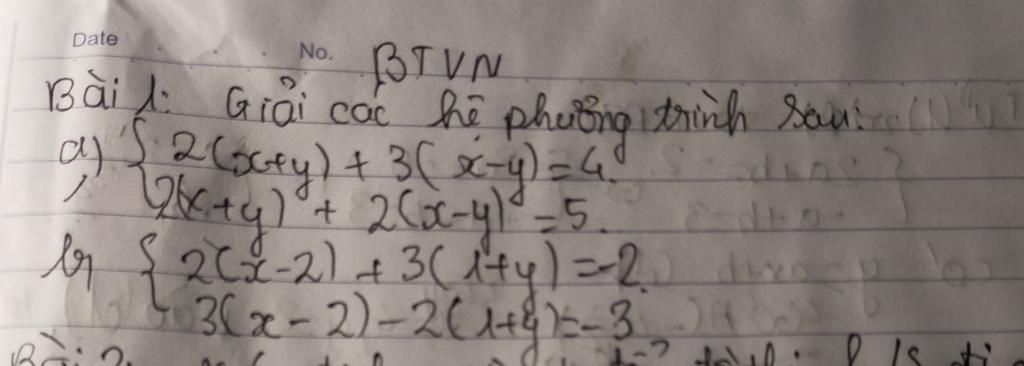 Date No. BTVN
Bài 1: Giải các hệ phương trình sau:
a) { 2(x+y) + 3(x-y) = 4.
2(x+y) + 2(x-y) = 5.
b) { 2(x-2) + 3(1+y) = -2.
3(x-2) - 2(1+y) = -3